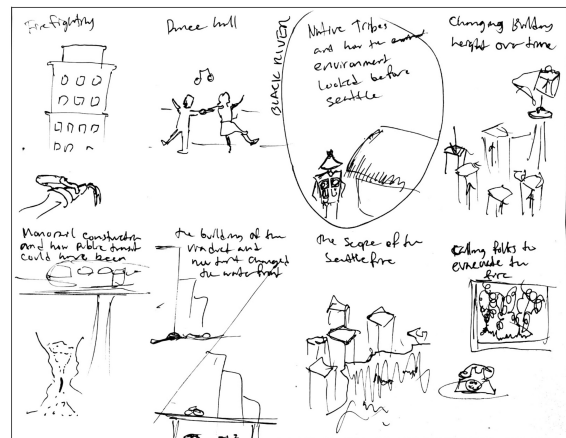 Firefighting
Dance hall
BLACK RIVER
Native Tribes
and how the
environment
looked before
seattle
Changing Building
height over time
Monorail construction
and how public transit
could have been
the building of the
viaduct and
how that changed
the waterfront
The scope of the
Seattle fire
Calling folks to
evacuate the
fire